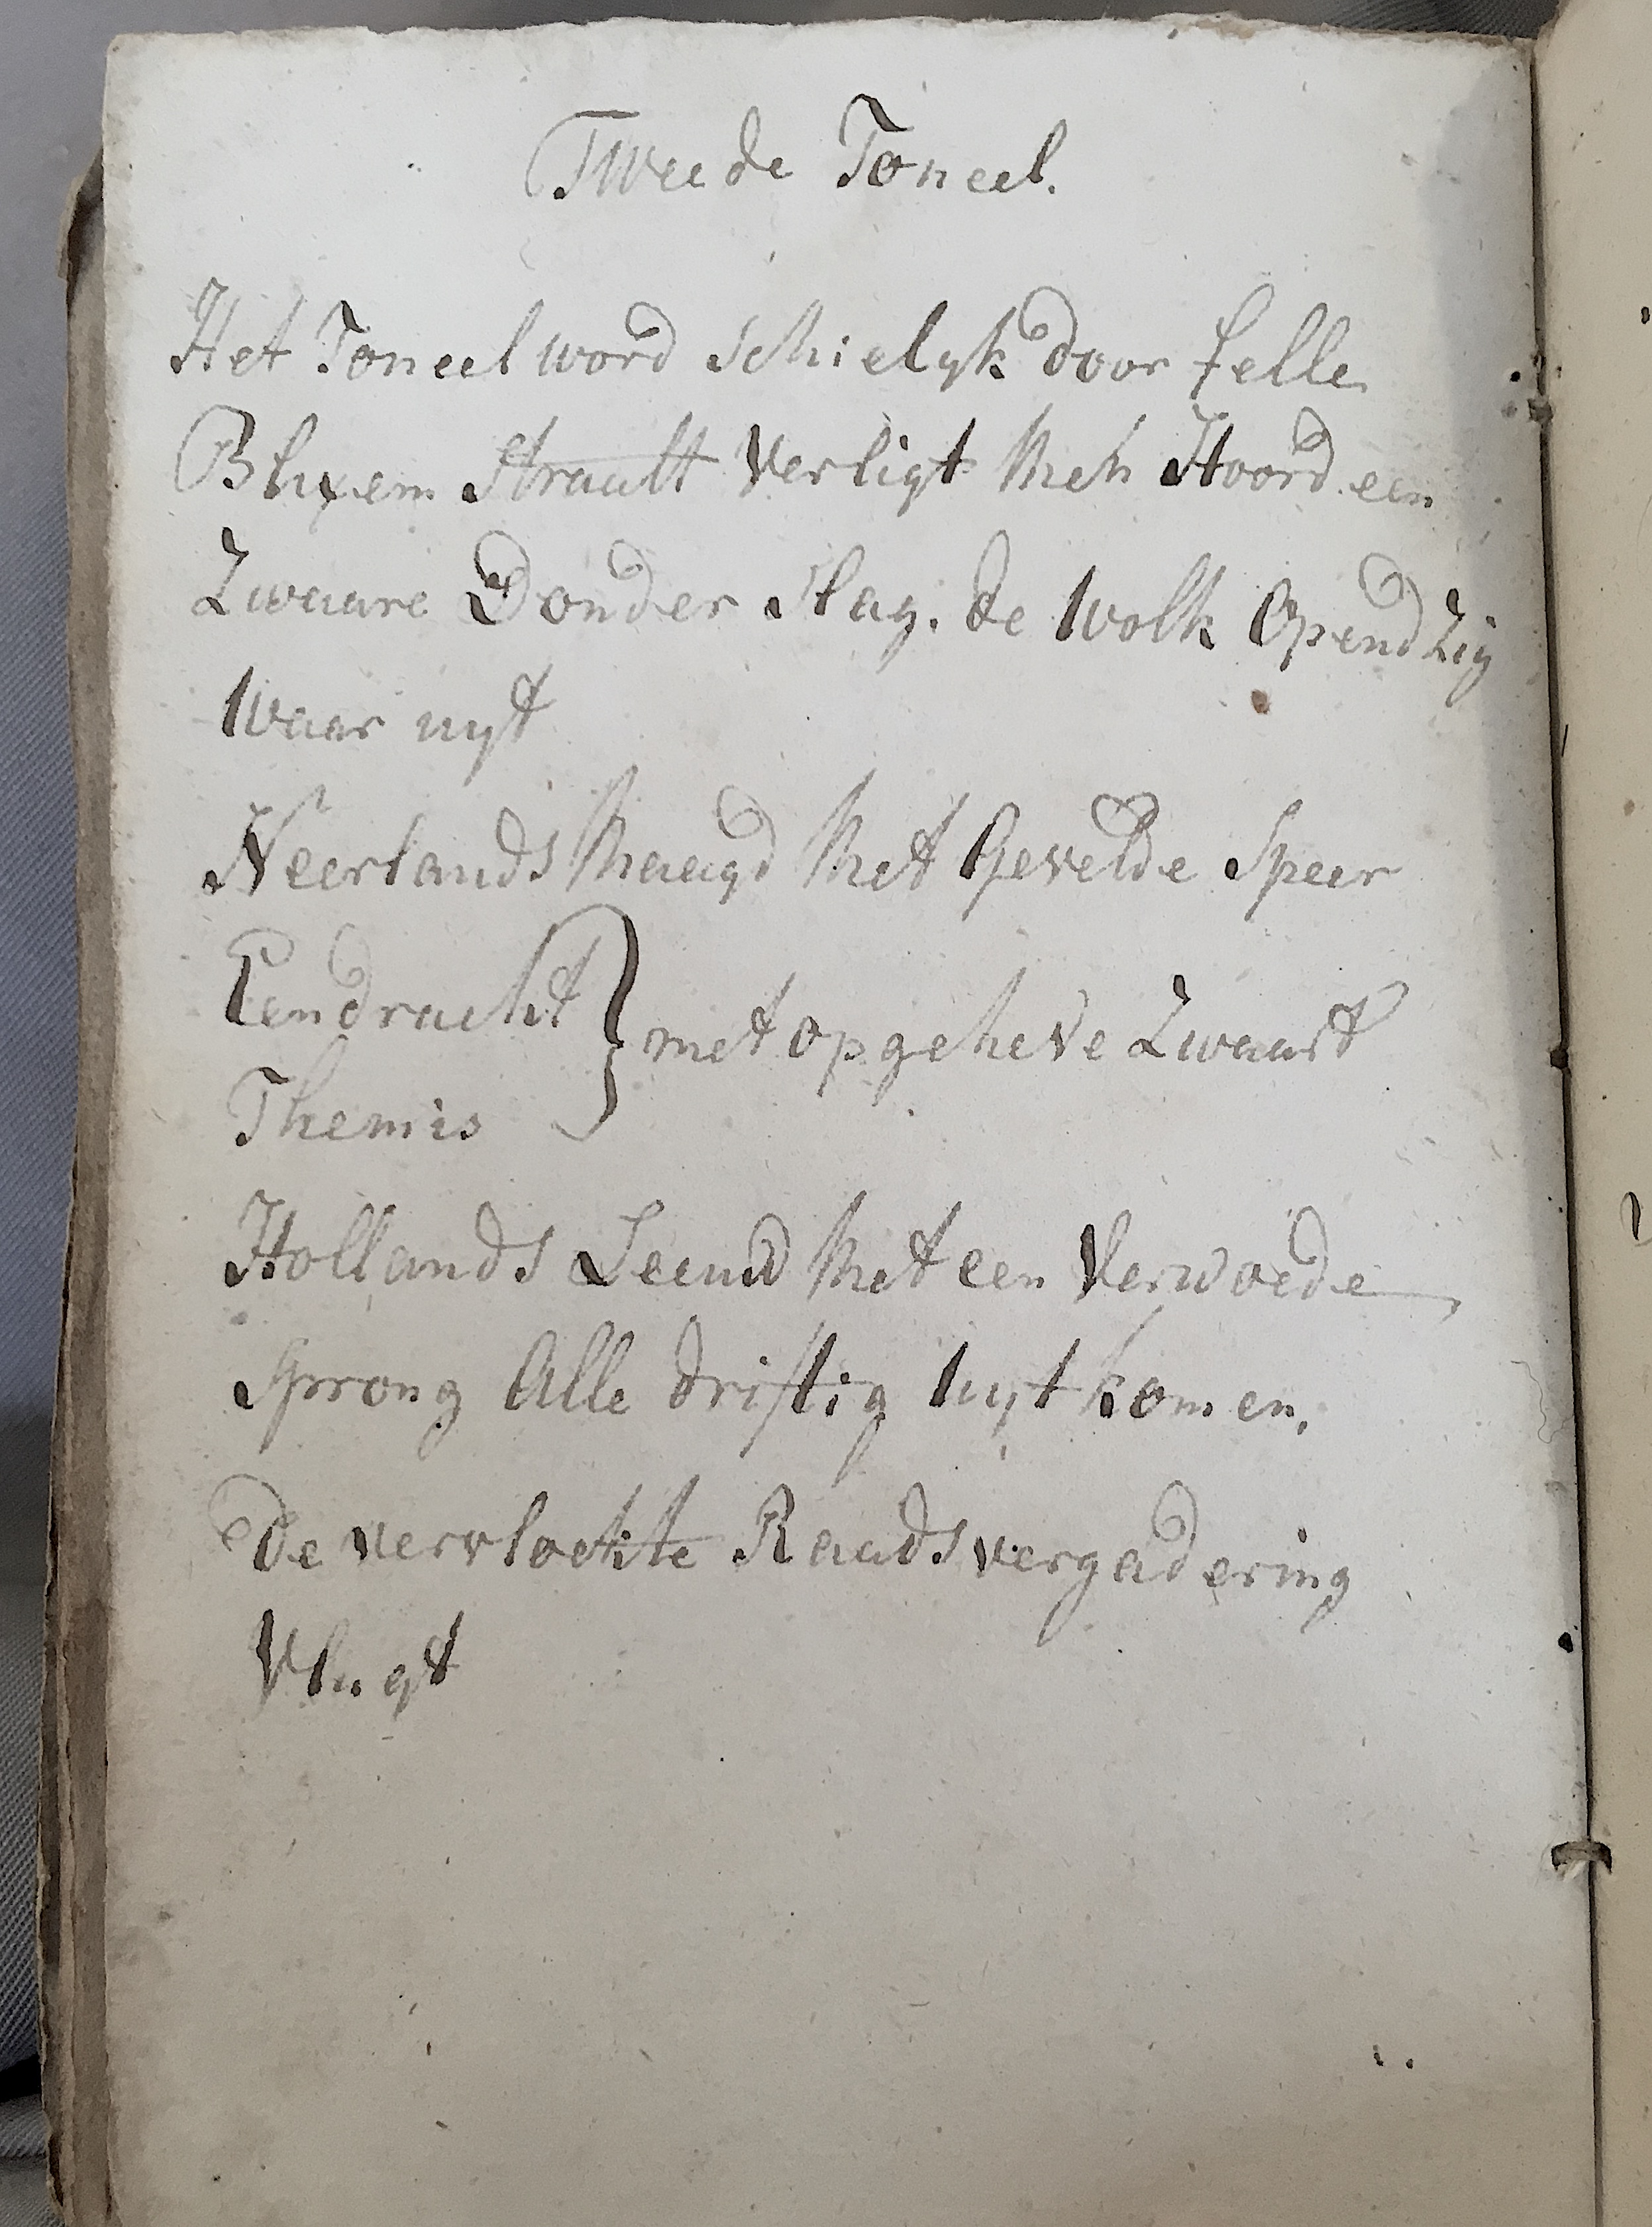 Tweede Toneel.
Het Toneel word schielyk door felle
Blixem straalt Verligt Men Hoord een
Zwaare Donder slag. de Wolk Opend Zig
Waar uyt
Neerlands Maagd Met Gevelde Speer
Eendracht } met opgeheve Zwaart
Themis
Hollands Leeuw Met een Verwoede
sprong Alle driftig uyt komen.
De vervloekte Raadsvergadering
Vlugt